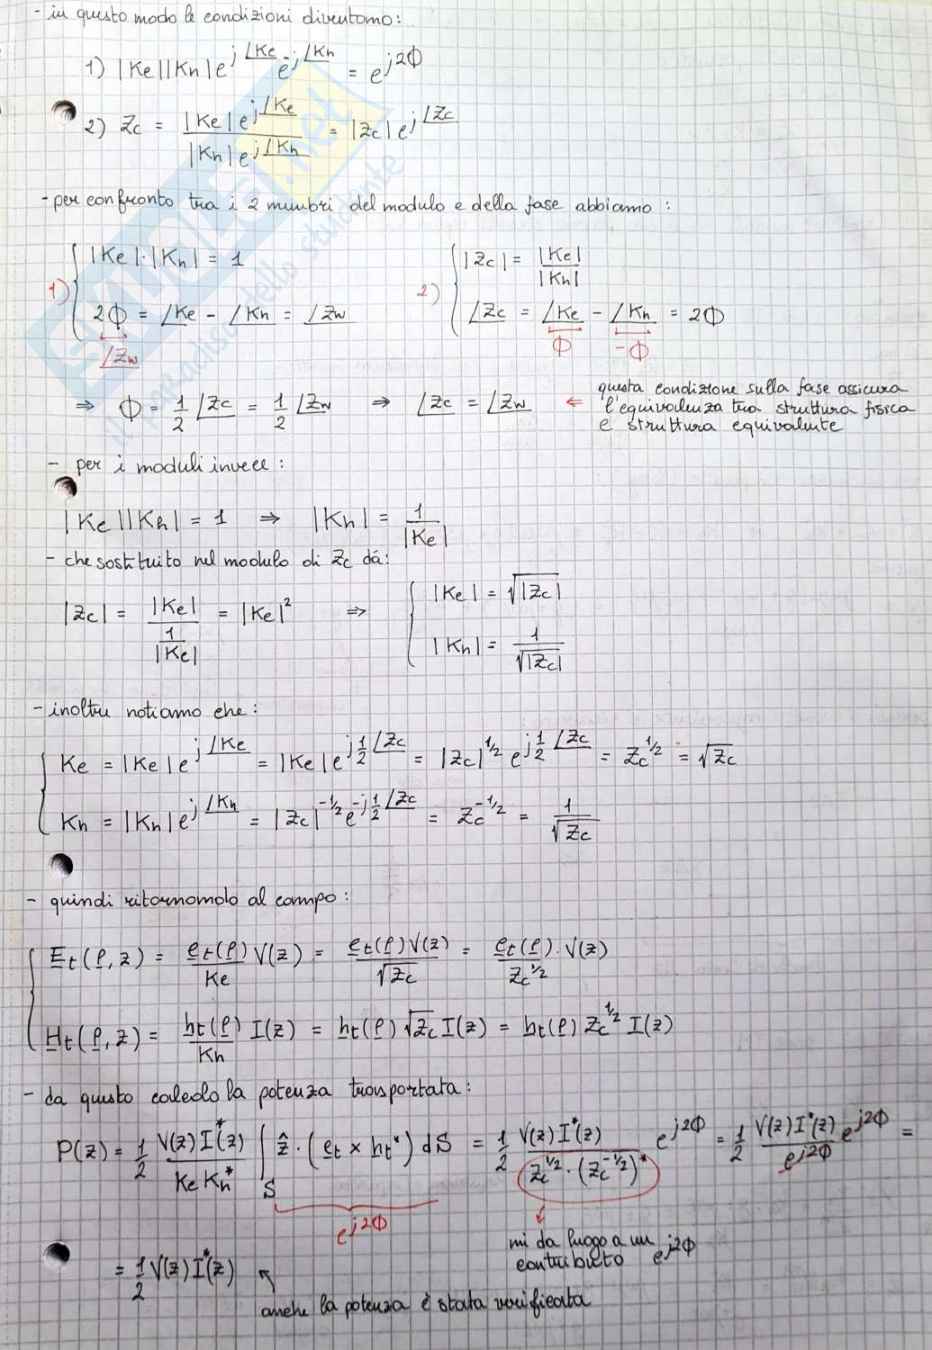 - in questo modo le condizioni diventano:
1) |Ke||Kh| e^{j∠Ke} e^{-j∠Kh} = e^{j2Φ}
2) Zc = |Ke| e^{j∠Ke} / |Kh| e^{j∠Kh} = |Zc| e^{j∠Zc}
- per confronto tra i 2 membri del modulo e della fase abbiamo:
1) { |Ke|·|Kh| = 1
2Φ = ∠Ke - ∠Kh = ∠Zw
∠Zw
2) { |Zc| = |Ke| / |Kh|
∠Zc = ∠Ke - ∠Kh = 2Φ
Φ -Φ
⇒ Φ = 1/2 ∠Zc = 1/2 ∠Zw ⇒ ∠Zc = ∠Zw ⇐ questa condizione sulla fase assicura
l'equivalenza tra struttura fisica
e struttura equivalente
- per i moduli invece:
|Ke||Kh| = 1 ⇒ |Kh| = 1/|Ke|
- che sostituito nel modulo di Zc dá:
|Zc| = |Ke| / (1/|Ke|) = |Ke|² ⇒ { |Ke| = √|Zc|
|Kh| = 1/√|Zc|
- inoltre notiamo che:
{ Ke = |Ke| e^{j∠Ke} = |Ke| e^{j1/2∠Zc} = |Zc|^{1/2} e^{j1/2∠Zc} = Zc^{1/2} = √Zc
Kh = |Kh| e^{j∠Kh} = |Zc|^{-1/2} e^{-j1/2∠Zc} = Zc^{-1/2} = 1/√Zc
- quindi ritornando al campo:
{ Et(ρ,z) = et(ρ)/Ke V(z) = et(ρ)V(z)/√Zc = et(ρ)/Zc^{1/2} · V(z)
Ht(ρ,z) = ht(ρ)/Kh I(z) = ht(ρ) √Zc I(z) = ht(ρ) Zc^{1/2} I(z)
- da questo calcolo la potenza trasportata:
P(z) = 1/2 V(z) I*(z) / Ke Kh* ∫_S ẑ · (et × ht*) dS = 1/2 V(z) I*(z) / Zc^{1/2} · (Zc^{-1/2})* e^{j2Φ} = 1/2 V(z) I*(z) / e^{j2Φ} e^{j2Φ} =
e^{j2Φ}
mi da luogo a un
contributo e^{j2Φ}
= 1/2 V(z) I*(z)
anche la potenza è stata verificata